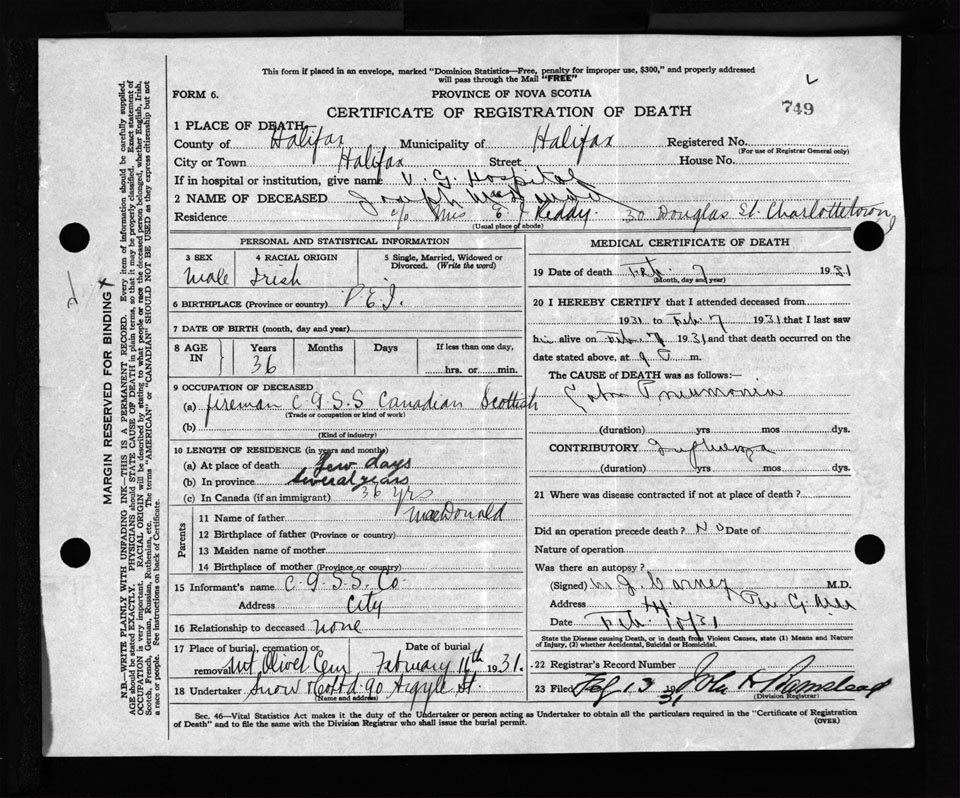 This form if placed in an envelope, marked "Dominion Statistics—Free, penalty for improper use, $300," and properly addressed
will pass through the Mail "FREE"
FORM 6.
PROVINCE OF NOVA SCOTIA
749
CERTIFICATE OF REGISTRATION OF DEATH
1 PLACE OF DEATH
County of Halifax Municipality of Halifax Registered No.
(For use of Registrar General only)
City or Town Halifax Street House No.
If in hospital or institution, give name V. G. Hospital
2 NAME OF DECEASED Joseph
Residence c/o Mrs E. J Reddy. 30 Douglas St. Charlottetown
(Usual place of abode)
PERSONAL AND STATISTICAL INFORMATION
3 SEX 4 RACIAL ORIGIN 5 Single, Married, Widowed or
Divorced. (Write the word)
Male Irish
6 BIRTHPLACE (Province or country) P.E.I.
7 DATE OF BIRTH (month, day and year)
8 AGE IN Years Months Days If less than one day,
36 hrs. or min.
9 OCCUPATION OF DECEASED
(a) fireman C.G.S.S Canadian Scottish
(Trade or occupation or kind of work)
(b)
(Kind of industry)
10 LENGTH OF RESIDENCE (in years and months)
(a) At place of death few days
(b) In province several years
(c) In Canada (if an immigrant) 36 yrs
Parents
11 Name of father MacDonald
12 Birthplace of father (Province or country)
13 Maiden name of mother
14 Birthplace of mother (Province or country)
15 Informant's name C.G.S.S. Co
Address City
16 Relationship to deceased none
17 Place of burial, cremation or Date of burial
removal Mt Olivet Cem February 11th 1931.
18 Undertaker Snow & Co Ltd 90 Argyle St.
(Name and address)
MEDICAL CERTIFICATE OF DEATH
19 Date of death Feb. 7 1931
(Month, day and year)
20 I HEREBY CERTIFY that I attended deceased from
1931 to Feb. 7 1931 that I last saw
him alive on Feb. 7 1931 and that death occurred on the
date stated above, at 9 m.
The CAUSE of DEATH was as follows:—
Pneumonia
(duration) yrs mos dys.
CONTRIBUTORY Influenza
(duration) yrs mos dys.
21 Where was disease contracted if not at place of death?
Did an operation precede death? No Date of
Nature of operation
Was there an autopsy?
(Signed) M.D.
Address
Date Feb. 10/31
State the Disease causing Death, or in death from Violent Causes, state (1) Means and Nature
of Injury, (2) whether Accidental, Suicidal or Homicidal.
22 Registrar's Record Number
23 Filed Feb 13 1931 John H
(Division Registrar)
Sec. 46—Vital Statistics Act makes it the duty of the Undertaker or person acting as Undertaker to obtain all the particulars required in the "Certificate of Registration
of Death" and to file the same with the Division Registrar who shall issue the burial permit.
(OVER)
MARGIN RESERVED FOR BINDING
N.B.—WRITE PLAINLY WITH UNFADING INK—THIS IS A PERMANENT RECORD. Every item of information should be carefully supplied.
AGE should be stated EXACTLY. PHYSICIANS should STATE CAUSE OF DEATH in plain terms, so that it may be properly classified. Exact statement of
OCCUPATION is very important. RACIAL ORIGIN will be described by stating to what people or race the deceased person belonged, whether English, Irish,
Scotch, French, German, Russian, Ruthenian, etc. The terms "AMERICAN" or "CANADIAN" SHOULD NOT BE USED as they express citizenship but not
a race or people. See instructions on back of Certificate.